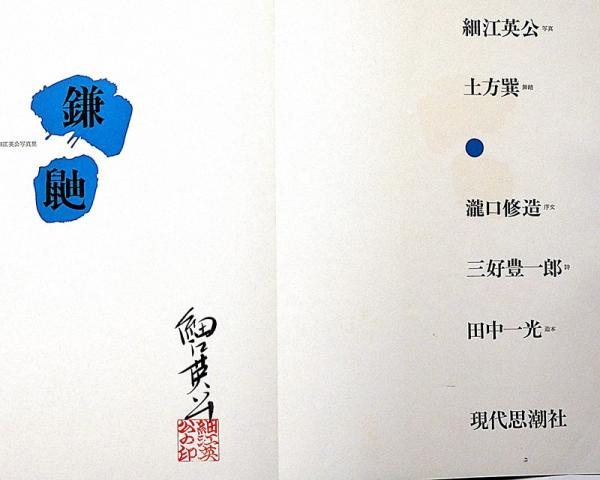 鎌
鼬
細江英公写真集
細江英公
細江英公の印
細江英公 写真
土方巽 舞踏
瀧口修造 序文
三好豊一郎 詩
田中一光 造本
現代思潮社